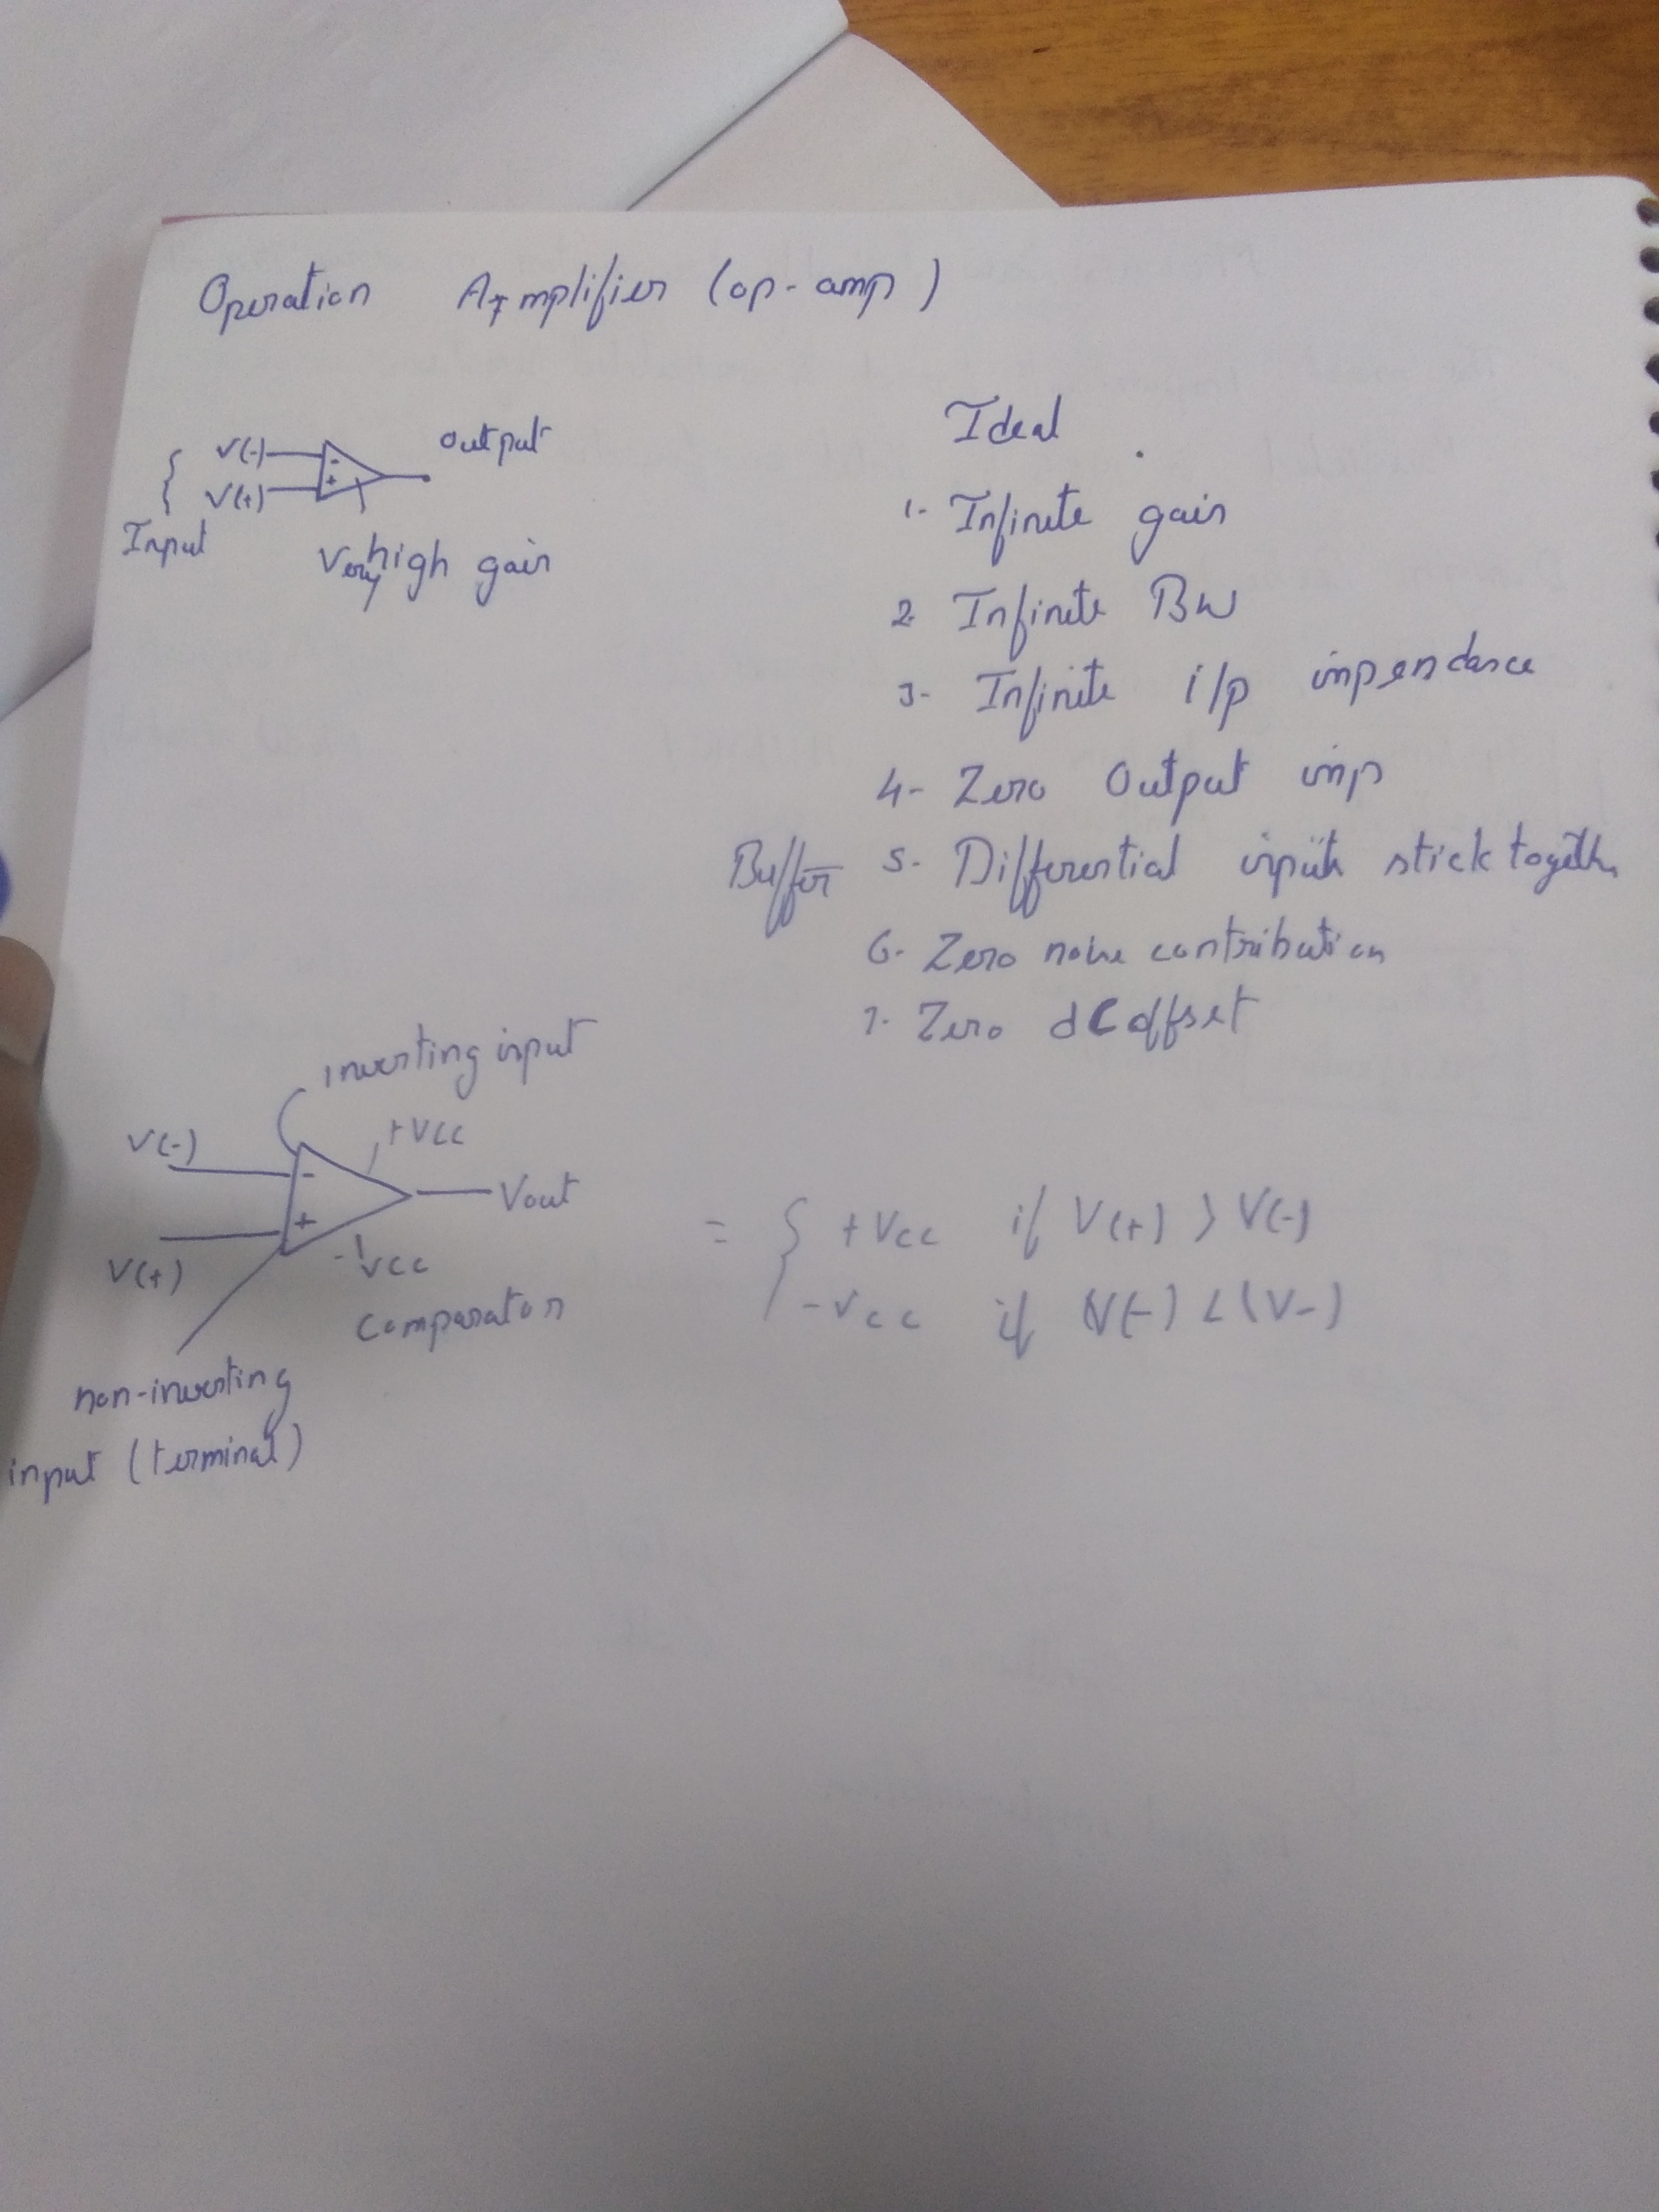 Operation Amplifier (op-amp)
V(-)
V(+)
Input
-
+
output
Very high gain
Ideal
1. Infinite gain
2. Infinite BW
3. Infinite i/p impendance
4. Zero Output imp
Buffer 5. Differential inputs stick together
6. Zero noise contribution
7. Zero dC offset
inverting input
V(-)
V(+)
-
+
+Vcc
-Vcc
Vout
Comparator
non-inverting
input (terminal)
= { +Vcc if V(+) > V(-)
-Vcc if V(-) < (V-)